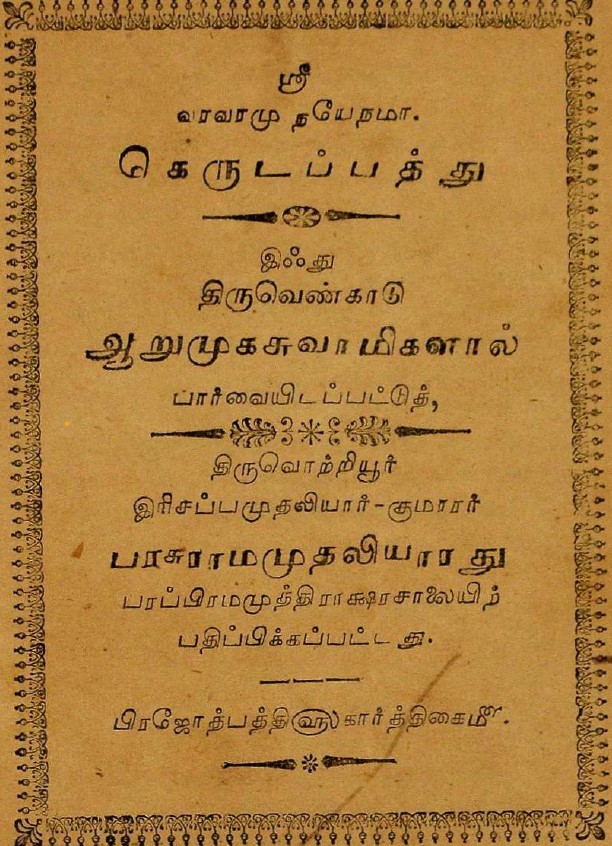 ஸ்ரீ
வரவரமு நயேநமா.
கெருடப்பத்து
இஃது
திருவெண்காடு
ஆறுமுகசுவாமிகளால்
பார்வையிடப்பட்டுத்,
திருவொற்றியூர்
இரிசப்பமுதலியார்-குமாரர்
பரசுராமமுதலியாரது
பரப்பிரமமுத்திராக்ஷரசாலையிற்
பதிப்பிக்கப்பட்டது.
பிரஜோத்பத்தி௵கார்த்திகை௴.